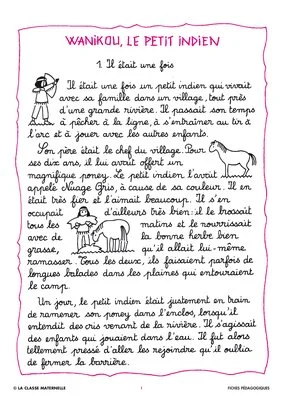 WANIKOU, LE PETIT INDIEN
1. Il était une fois
Il était une fois un petit indien qui vivait
avec sa famille dans un village, tout près
d'une grande rivière. Il passait son temps
à pêcher à la ligne, à s'entraîner au tir à
l'arc et à jouer avec les autres enfants.
Son père était le chef du village. Pour
ses dix ans, il lui avait offert un
magnifique poney. Le petit indien l'avait
appelé Nuage Gris, à cause de sa couleur. Il en
était très fier et l'aimait beaucoup. Il s'en
occupait d'ailleurs très bien : il le brossait
tous les matins et le nourrissait
avec de la bonne herbe bien
grasse, qu'il allait lui-même
ramasser. Tous les deux, ils faisaient parfois de
longues balades dans les plaines qui entouraient
le camp.
Un jour, le petit indien était justement en train
de ramener son poney dans l'enclos, lorsqu'il
entendit des cris venant de la rivière. Il s'agissait
des enfants qui jouaient dans l'eau. Il fut alors
tellement pressé d'aller les rejoindre qu'il oublia
de fermer la barrière.
© LA CLASSE MATERNELLE 1 FICHES PÉDAGOGIQUES